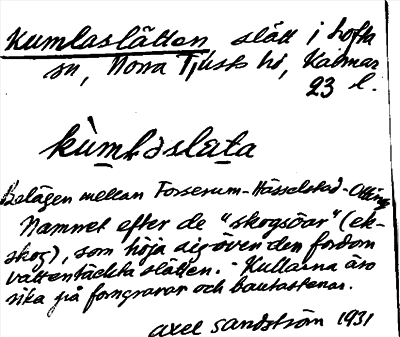 Kumlaslätten slätt i Lofta
sn, Norra Tjusts hd, Kalmar
23 l.
kùmlǝslɛta
Belägen mellan Forserum-Hässelstad-Olling
Namnet efter de "skogsöar" (ek-
skog), som höja sig över den fordom
vattentäckta slätten. - Kullarna äro
rika på forngravar och bautastenar.
Axel Sandström 1931